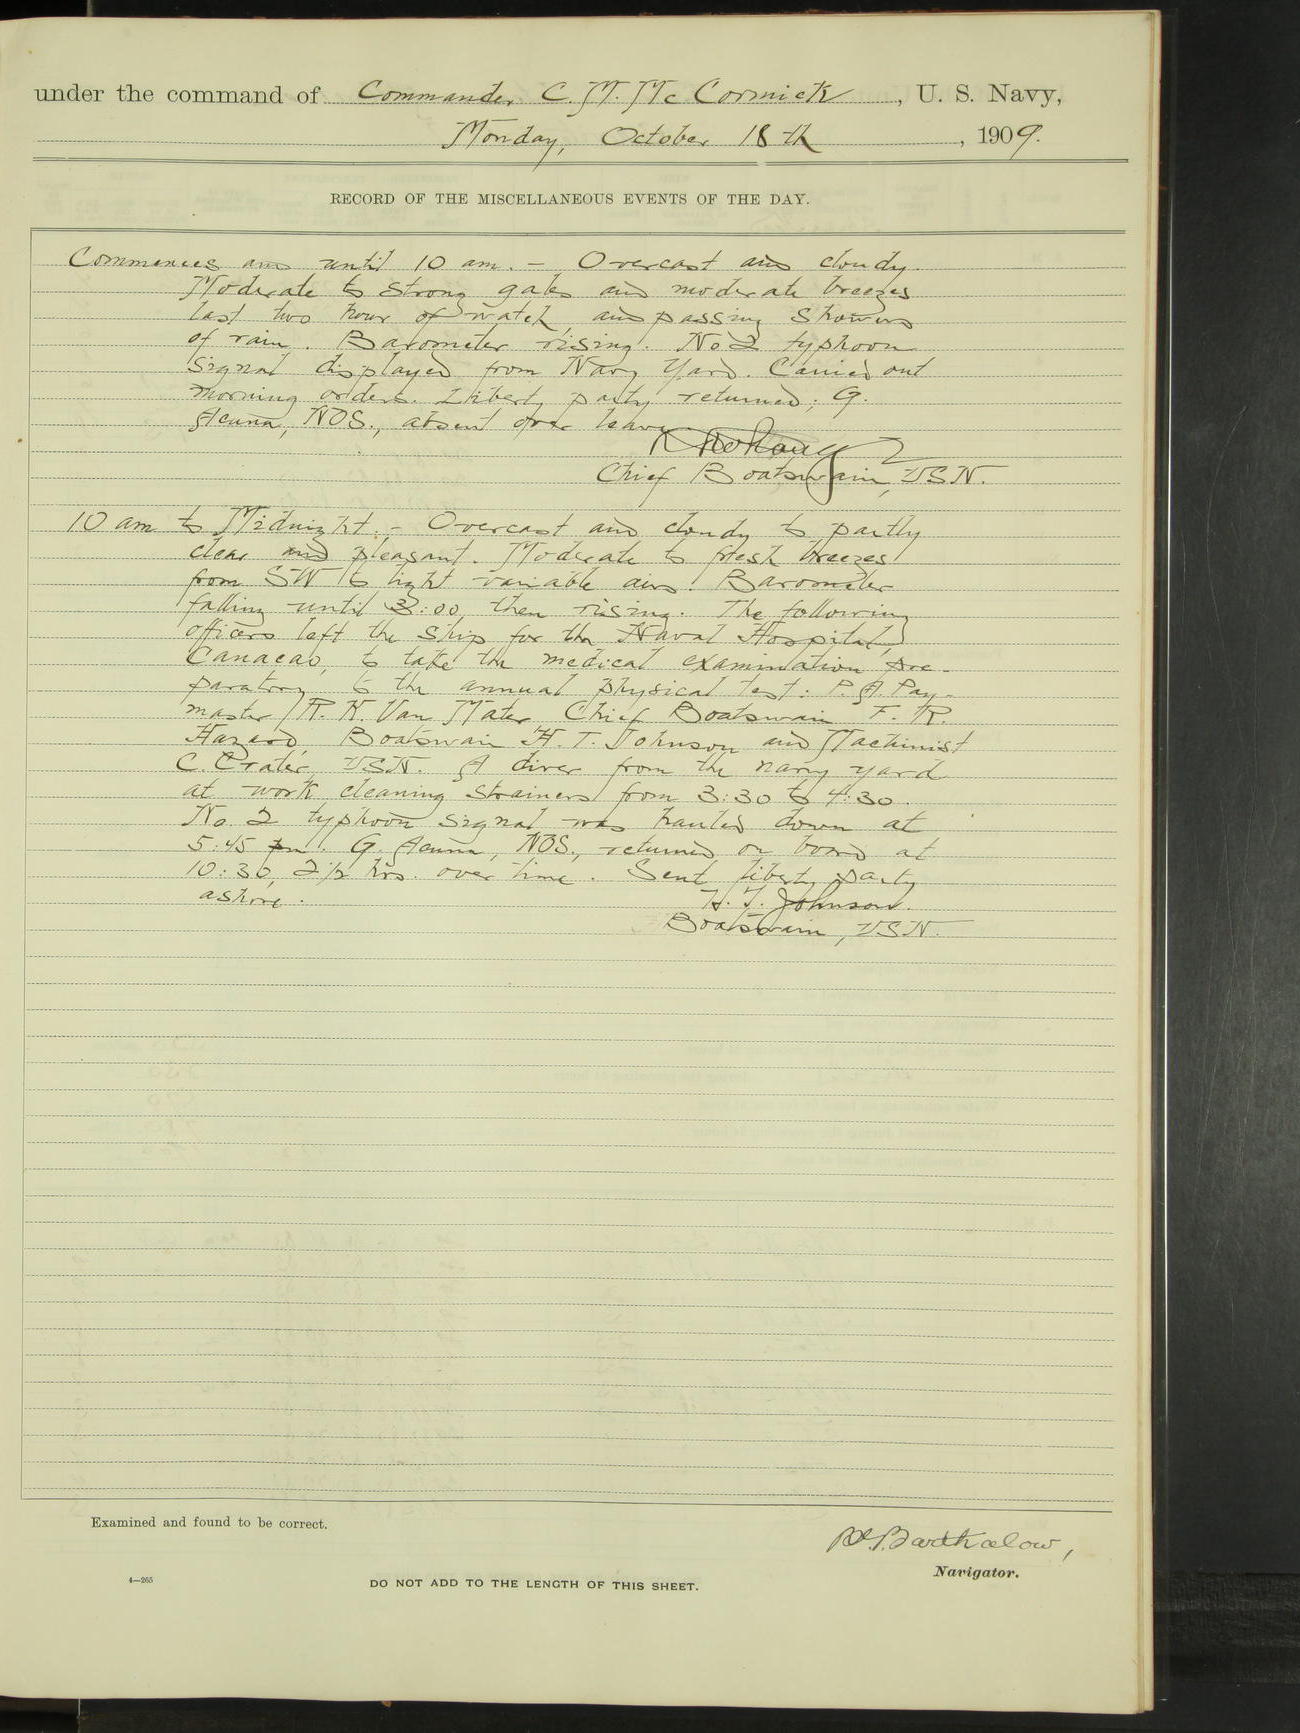 under the command of Commander C. M. McCormick, U. S. Navy,
Monday, October 18th, 1909.
RECORD OF THE MISCELLANEOUS EVENTS OF THE DAY.
Commences and until 10 am. - Overcast and cloudy.
Moderate to strong gales and moderate breezes
last two hour of watch, and passing showers
of rain. Barometer rising. No 2 typhoon
signal displayed from Navy Yard. Carried out
morning orders. Liberty party returned; G.
Acuna, NOS., absent over leave.
Chief Boatswain, USN.
10 am to Midnight: - Overcast and cloudy to partly
clear and pleasant. Moderate to fresh breezes
from SW to light variable airs. Barometer
falling until 3:00, then rising. The following
officers left the ship for the Naval Hospital,
Canacao, to take the medical examination pre-
paratory to the annual physical test: P. A. Pay-
master R. H. Van Mater, Chief Boatswain F. R.
Hazard, Boatswain H. T. Johnson and Machinist
C. Crater, USN. A diver from the navy yard
at work cleaning strainers from 3:30 to 4:30.
No. 2 typhoon signal was hauled down at
5:45 pm. G. Acuna, NOS., returned on board at
10:30, 2 1/2 hrs. over time. Sent liberty party
ashore. H. T. Johnson.
Boatswain, USN.
Examined and found to be correct.
Barthalow,
Navigator.
4—265
DO NOT ADD TO THE LENGTH OF THIS SHEET.